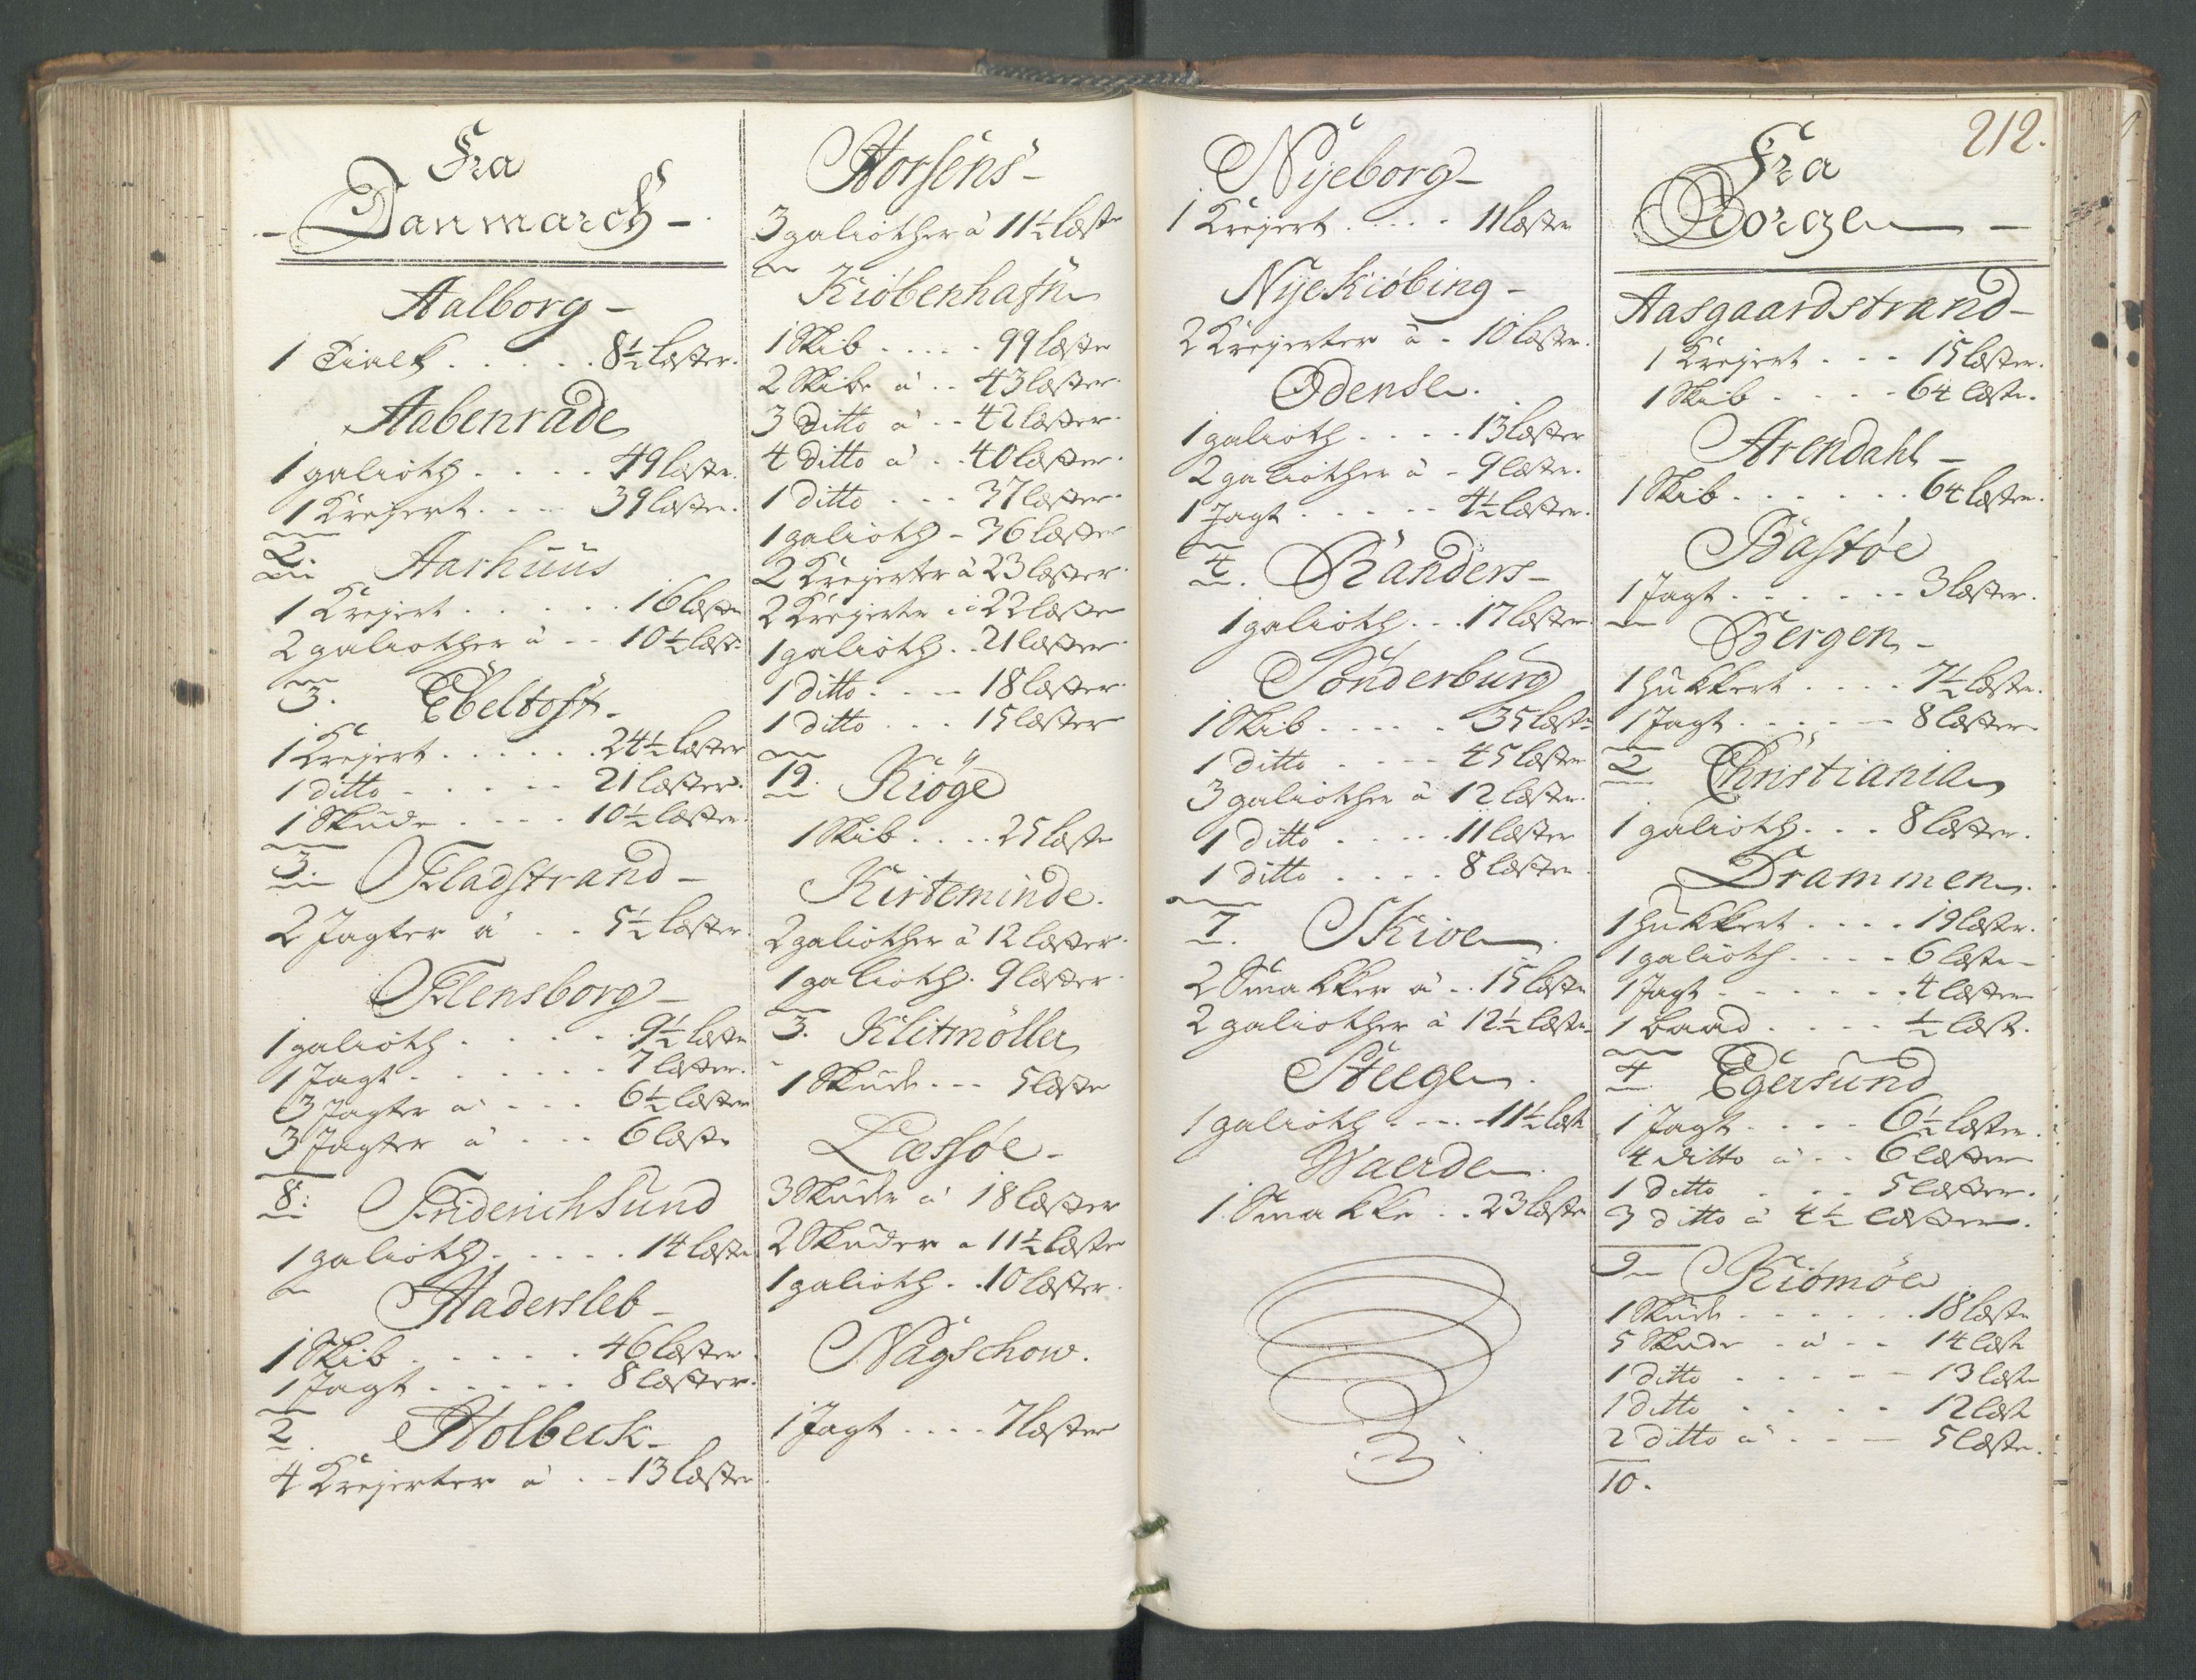 Fra
Danmarch
Aalborg
1 Tialk . . . . . 8½ læster.
Aabenrade
1 galioth . . . . 49 læster.
1 Kreÿert . . . 39 læster.
2.
Aarhuus
1 Kreÿert . . . . . 16 læster
2 galiother à . . 10½ læst:
3.
Ebeltoft
1 Kreÿert . . . . . 24½ læster
1 ditto . . . . . 21 læster.
1 Skude . . . . 10½ læster.
3.
Fladstrand
2 Jagter à . . 5½ læster.
Flensborg
1 galioth . . . . 9½ læster
1 Jagt . . . . . . 7 læster.
3 Jagter à . . . 6½ læster
3 Jagter à . . . 6 læster
8.
Friderichsund
1 galioth . . . . . 14 læster
Hadersleb
1 Skib . . . . . 46 læster
1 Jagt . . . . . 8 læster.
2.
Holbeck
4 Kreÿerter à . . 13 læster.
Horsens
3 galiother à 11½ læster
Kiöbenhafn
1 Skib . . . . . 99 læster
2 Skibe à . . 43 læster.
3 ditto à . . 42 læster.
4 ditto à . . 40 læster.
1 ditto . . . 37 læster.
1 galioth - 36 læster
2 Kreÿerter à 23 læster.
2 Kreÿerter à 22 læster
1 galioth . . 21 læster.
1 ditto . . . 18 læster.
1 ditto . . . 15 læster
19.
Kiöge
1 Skib . . . . 25 læster
Kirteminde.
2 galiother à 12 læster.
1 galioth . 9 læster.
3.
Klitmöller
1 Skude . . . 5 læster
Læssöe
3 Skuder à 18 læster
2 Skuder a 11½ læster
1 galioth . . 10 læster.
Nagschow.
1 Jagt . . . . 7 læster
212.
Nÿeborg
1 Kreÿert . . . . 11 læster
Nÿekiöbing
2 Kreÿerter à . 10 læster.
Odense.
1 galioth . . . . 13 læster
2 galiother à - 9 læster.
1 Jagt . . . . . 4½ læster.
4.
Randers
1 galioth . . . 17 læster
Sönderburg
1 Skib . . . . . 35 læster
1 ditto . . . . 45 læster
3 galiother à 12 læster.
1 ditto . . . . . 11 læster
1 ditto . . . . 8 læster
7.
Skive
2 Smakker à . . 15 læster
2 galiother à 12½ læster
Steege
1 galioth . . . . 11½ læst
Waerde
1 Smakke . . 23 læster
Fra
Norge
Aasgaardstrand
1 Kreÿert . . . 15 læster.
1 Skib . . . . 64 læster.
Arendahl
1 Skib . . . . . . 64 læster.
Bastöe
1 Jagt . . . . . . 3 læster.
Bergen
1 Hukkert . . . . 7½ læster.
1 Jagt . . . . . 8 læster
2
Christiania
1 galioth . . . 8 læster.
Drammen.
1 Hukkert . . . . 19 læster.
1 galioth . . . . 6 læster
1 Jagt . . . . . . 4 læster
1 baad . . . . ½ læst.
4
Egersund
1 Jagt . . . . 6½ læster.
4 ditto à . . 6 læster
1 ditto . . . 5 læster.
3 ditto à 4½ læster.
9
Kiömöe
1 Skude . . . . . . 18 læster
5 Skuder à . . 14 læst
1 ditto . . . . . 13 læster
1 ditto . . . . . 12 læst
2 ditto à . . . 5 læster.
10.